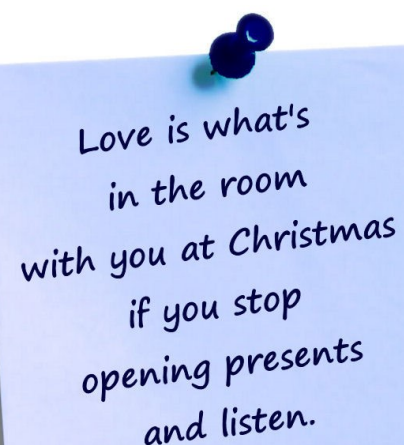 Love is what's
in the room
with you at Christmas
if you stop
opening presents
and listen.